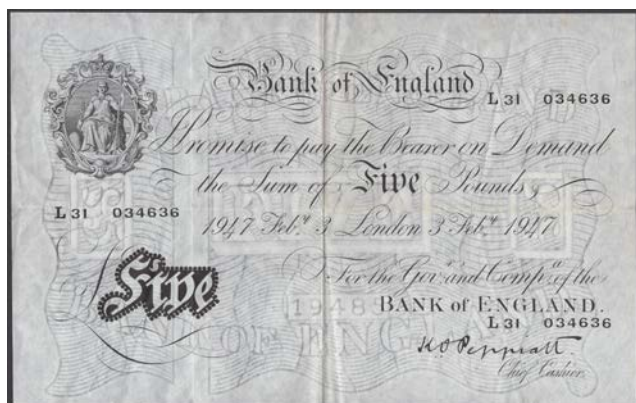 Bank of England
L 31 034636
I Promise to pay the Bearer on Demand
the Sum of Five Pounds
L 31 034636
1947 Feb.y 3 London 3 Feb.y 1947
Five
For the Gov.r and Comp.a of the
BANK of ENGLAND.
L 31 034636
K O Peppiatt
Chief Cashier